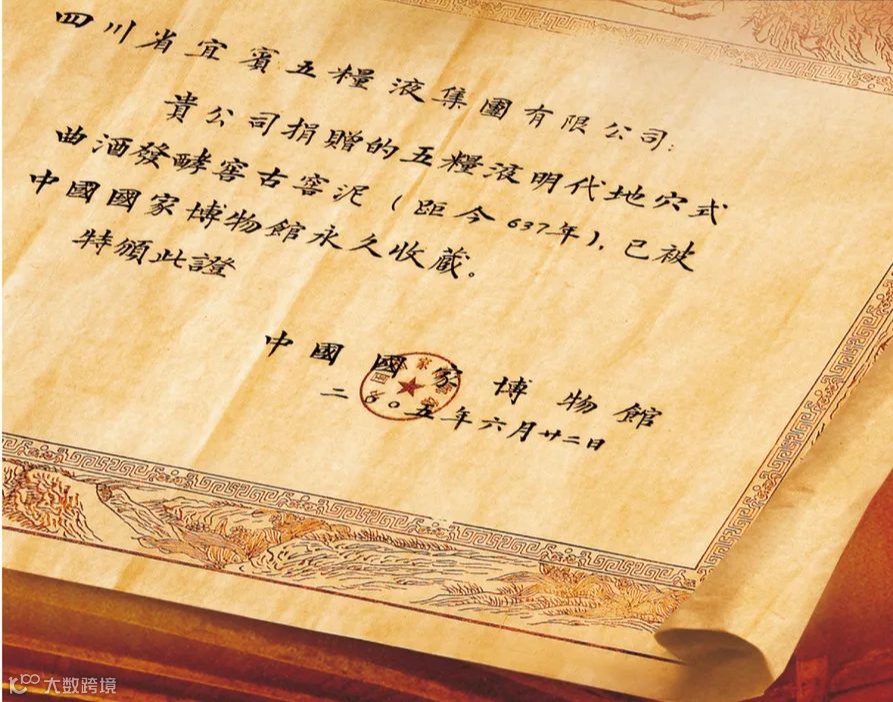 四川省宜賓五糧液集團有限公司：
貴公司捐贈的五糧液明代地穴式
曲酒發酵窖古窖泥（距今637年），已被
中國國家博物館永久收藏。
特頒此證
中國國家博物館
二〇〇五年六月廿二日
大数跨境